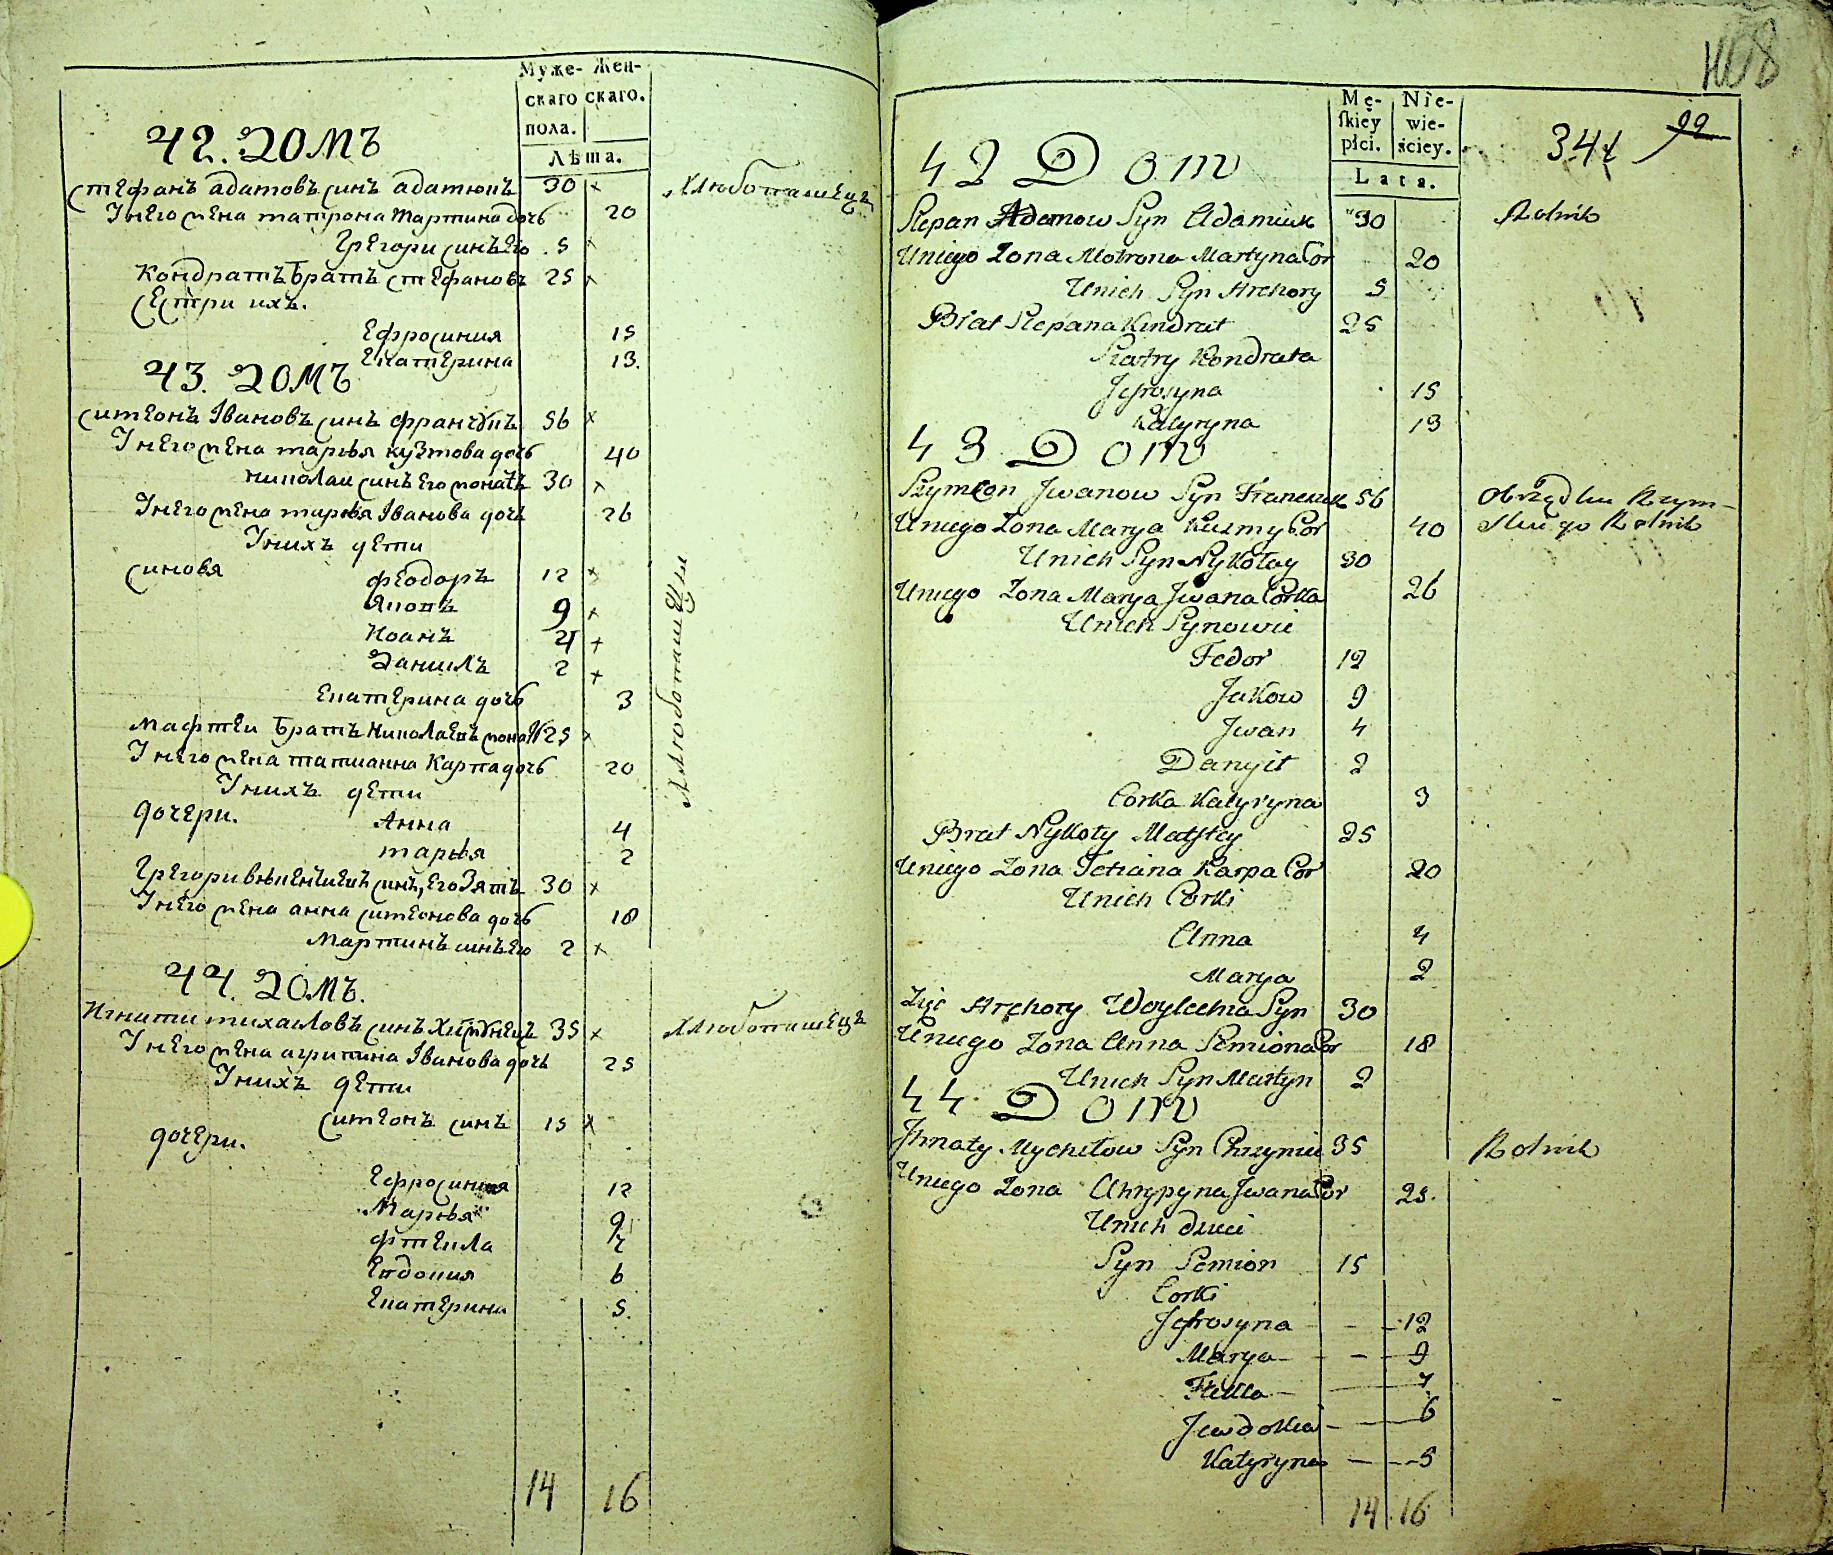 Муже- Жен-
скаго скаго.
пола.
Лѣта.
42. Домъ
Стефанъ адамовъ синъ адамюкъ 30 × Хлюбопашецъ
У него жена матрона мартина дочь 20
Григори синъ его 5 ×
Кондратъ братъ Стефановъ 25 ×
Сестри ихъ.
Ефросиния 15
Екатерина 13.
43. Домъ
Симеонъ Івановъ синъ франчукъ 56 ×
У него жена марья кузмова дочь 40
николаи синъ его женатъ 30 ×
У него жена марья Іванова дочь 26
У нихъ дети
синовя феодоръ 12 ×
Яковъ 9 ×
Иоанъ 4 ×
Данилъ 2 ×
Екатерина дочь 3
Матфеи братъ Николаевъ жонат 25 ×
У него жена татианна Карпа дочь 20
У нихъ дети
дочери. Анна 4
марья 2
Григори синъ, его Зять 30 ×
У него жена анна симеонова дочь 18
Мартинъ синъ его 2 ×
Хлюбопашецы
44. Домъ.
Игнати михаиловъ синъ 35 × Хлюбопашецъ
У него жена агрипина Іванова дочь 25
У нихъ дети
симеонъ синъ 15 ×
дочери.
Ефросиния 12
Марья 9
фтекла 7
Евдокия 6
Екатерина 5.
14 16
108
Mę- Nie-
skiey wie-
płci. ściey.
Lata.
344 99
42 Dom
Stepan Adamow Syn Adamiuk 30 Rolnik
Uniego Zona Motrona Martyna Cor 20
Unich Syn Arehory 5
Brat Stepana Kindrat 25
Siostry Kondrata
Jefrosyna 15
Katyryna 13
43 Dom
Szymeon Jwanow Syn Franczuk 56 Obrządku Rzym-
Uniego Zona Marya Kuzmy Cor 40 skiego Rolnik
Unich Syn Nykołay 30
Uniego Zona Marya Jwana Corka 26
Unich Synowie
Fedor 12
Jakow 9
Jwan 4
Danyił 2
Corka Katyryna 3
Brat Nykoły Matftey 25
Uniego Zona Tetiana Karpa Cor 20
Unich Corki
Anna 4
Marya 2
Zięć Arehory Woyciecha Syn 30
Uniego Zona Anna Semiona Cor 18
Unich Syn Martyn 2
44 Dom
Jhnaty Mychiłow Syn 35 Rolnik
Uniego Zona Ahrypyna Jwana Cor 25.
Unich dzieci
Syn Semion 15
Corki
Jefrosyna 12
Marya 9
Ftekla 7
Jewdokia 6
Katyryna 5
14 16